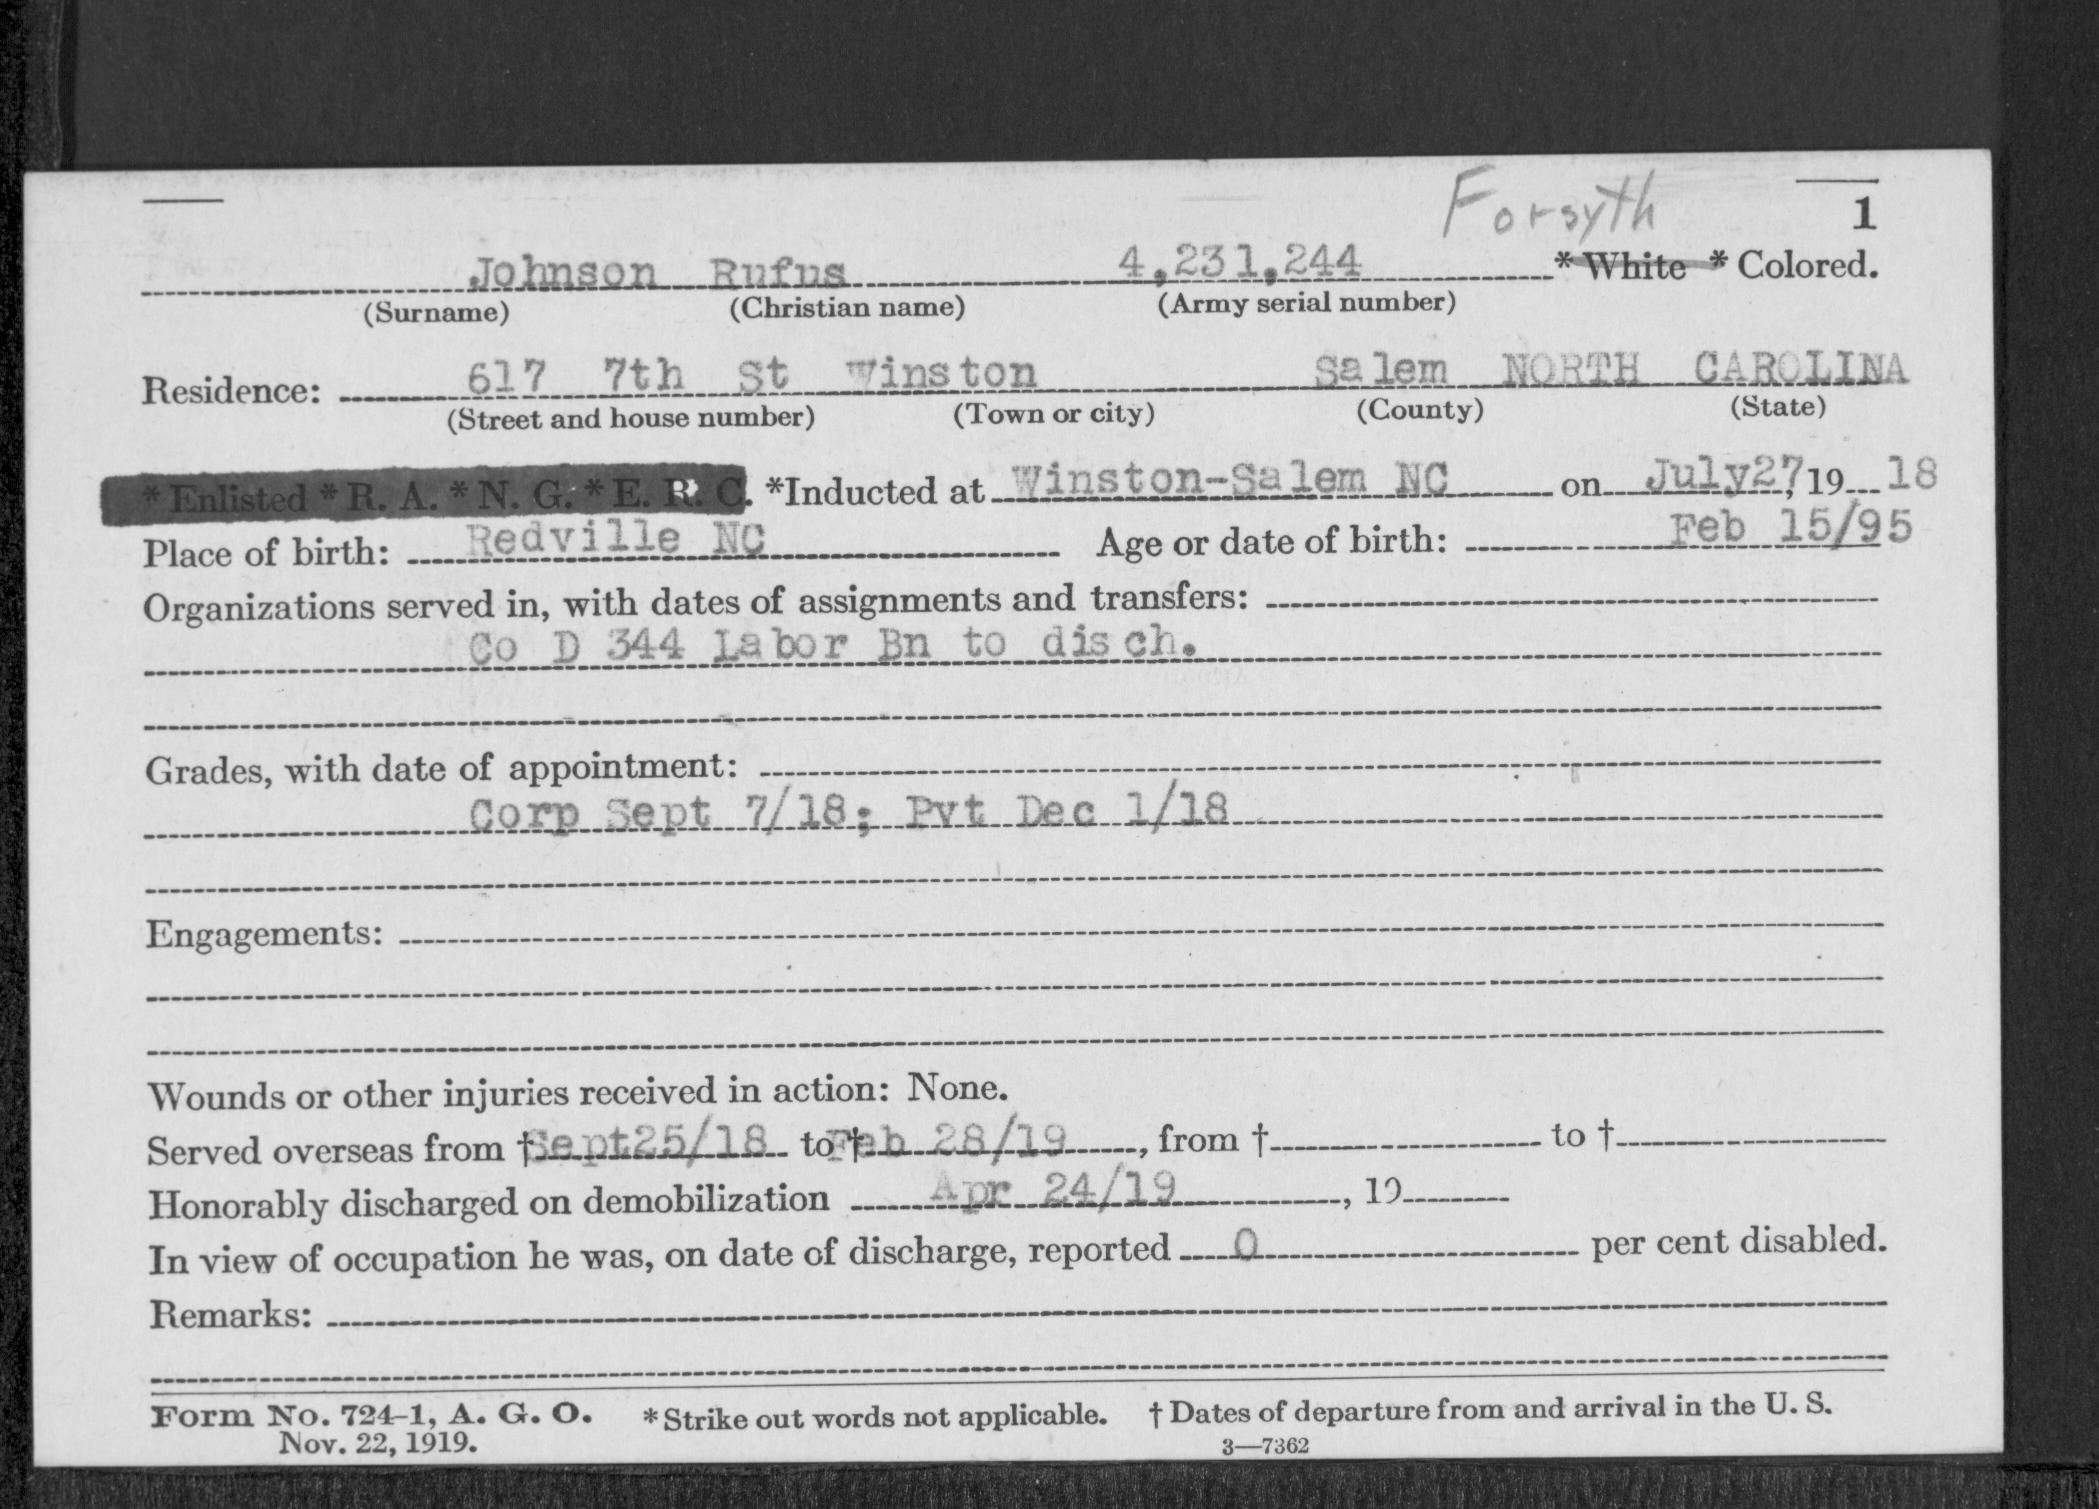 Forsyth
1
Johnson Rufus 4,231,244 * White * Colored.
(Surname) (Christian name) (Army serial number)
Residence: 617 7th St Winston Salem NORTH CAROLINA
(Street and house number) (Town or city) (County) (State)
* Enlisted * R. A. * N. G. * E. R. C. *Inducted at Winston-Salem NC on July27, 19 18
Place of birth: Redville NC Age or date of birth: Feb 15/95
Organizations served in, with dates of assignments and transfers:
Co D 344 Labor Bn to disch.
Grades, with date of appointment:
Corp Sept 7/18; Pvt Dec 1/18
Engagements:
Wounds or other injuries received in action: None.
Served overseas from † Sept25/18 to † Feb 28/19, from † to †
Honorably discharged on demobilization Apr 24/19, 19
In view of occupation he was, on date of discharge, reported 0 per cent disabled.
Remarks:
Form No. 724-1, A. G. O. * Strike out words not applicable. † Dates of departure from and arrival in the U. S.
Nov. 22, 1919. 3—7362